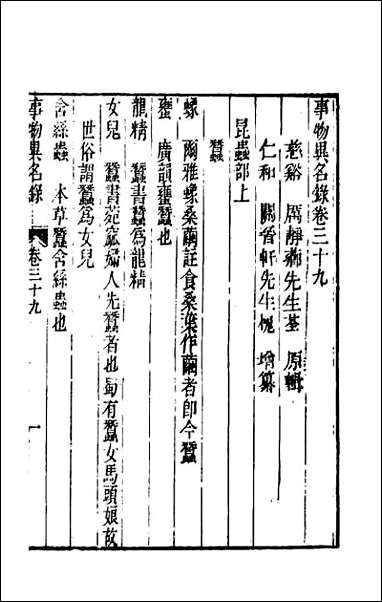 事物異名錄卷三十九
慈谿　厲靜薌先生荃　原輯
仁和　關晉軒先生槐　增纂
昆蟲部上
蠶
蟓　爾雅蟓桑繭註食桑葉作繭者卽今蠶
䗸　廣韻䗸蠶也
龍精　蠶書蠶爲龍精
女兒　蠶書苑窳婦人先蠶者也蜀有蠶女馬頭娘故
世俗謂蠶爲女兒
含絲蟲　本草蠶含絲蟲也
事物異名錄　卷三十九　一